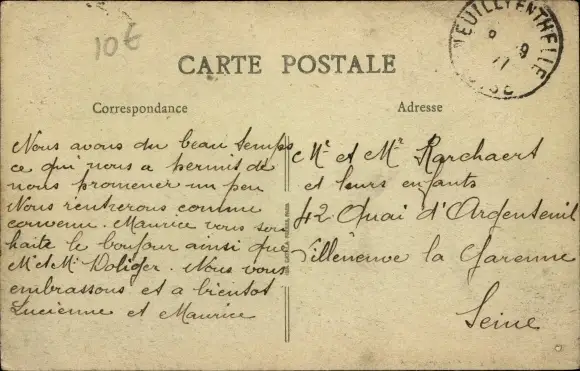 10€
NEUILLY EN THELLE
8 9
CARTE POSTALE
OISE
Correspondance
Nous avons du beau temps
ce qui nous a permit de
nous promener un peu
Nous rentrerons comme
convenu. Maurice vous sou
haite le bonjour ainsi que
Mr et Me Woliger. Nous vous
embrassons et a bientot
Lucienne et Maurice
Adresse
Me et Mr Rarchaert
et leurs enfants
42 Quai d'Argenteuil
Villeneuve la Garenne
Seine